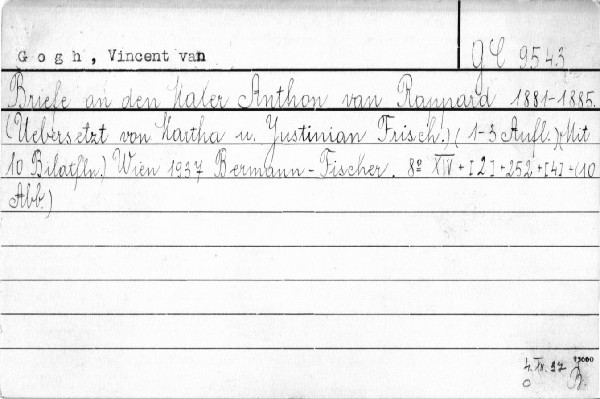 Gogh, Vincent van
GC 9543
Briefe an den Maler Anthon van Rappard 1881-1885.
(Uebersetzt von Martha u. Justinian Frisch.) (1-3 Aufl.) (Mit
10 Bildtfln.) Wien 1937 Bermann-Fischer. 8º XIV+[2]+252+[4]+(10
Abb.)
15000
B.